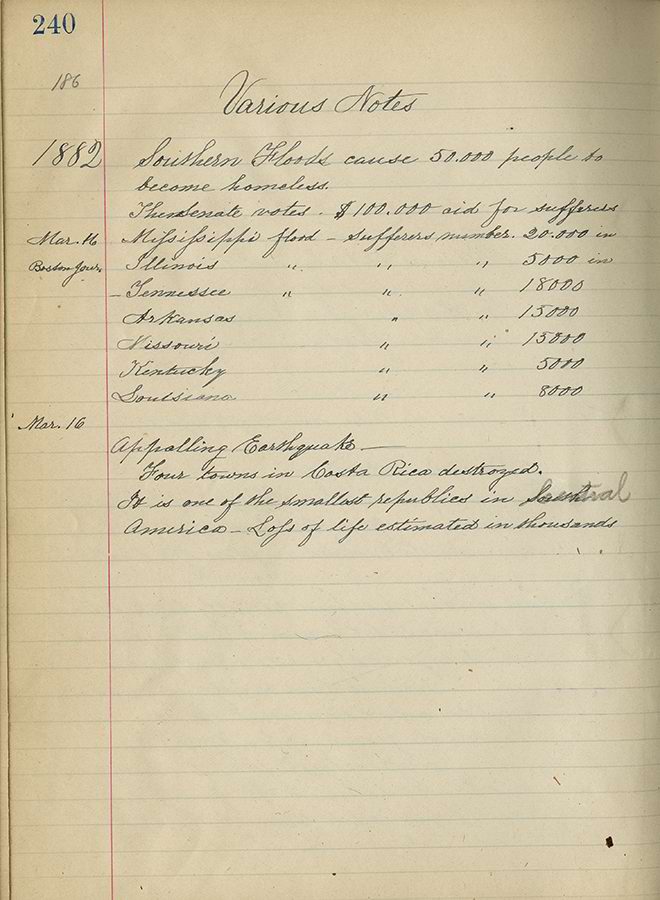 240
186
Various Notes
1882 Southern Floods cause 50.000 people to
become homeless.
The Senate votes. $100.000 aid for sufferers
Mar. 16 Missisippi flood – sufferers number. 20.000 in
Boston Jour. Illinois " " " 5000 in
– Tennessee " " " 18000
Arkansas " " 15000
Missouri " " 15000
Kentucky " " 5000
Louisiana " " 8000
Mar. 16
Appalling Earthquake –
Four towns in Costa Rica destroyed.
It is one of the smallest republics in Central
America – Loss of life estimated in thousands